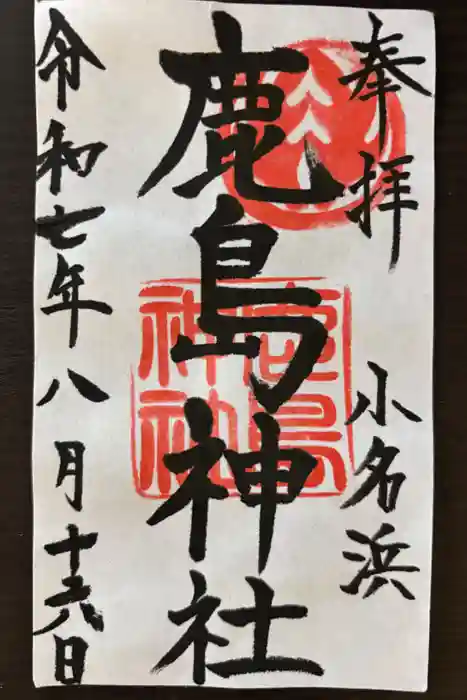 奉拝
小名浜
鹿島神社
鹿島
神社
令和七年八月十六日